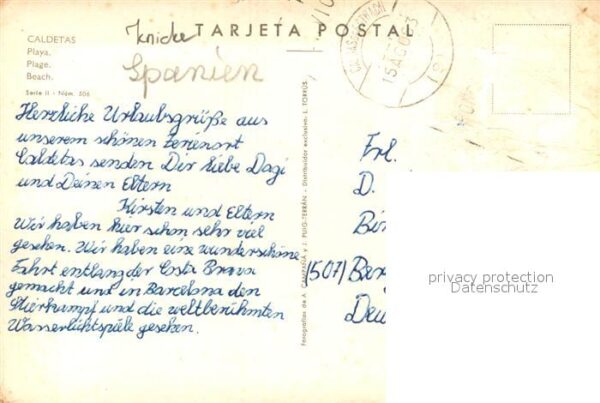 TARJETA POSTAL
CALDETAS
Playa.
Plage.
Beach.
Serie II - Núm. 506
Knicke
Spanien
15 AGO 63
Herzliche Urlaubsgrüße aus
unserem schönen Ferienort
Caldetas senden Dir liebe Dagi
und Deinen Eltern
Kirsten und Eltern
Wir haben hier schon sehr viel
gesehen. Wir haben eine wunderschöne
Fahrt entlang der Costa Brava
gemacht und in Barcelona den
Stierkampf und die weltberühmten
Wasserlichtspiele gesehen.
Fotografías de A. CAMPAÑA y J. PUIG-FERRÁN - Distribuidor exclusivo: L. TORRÚS
Frl.
D.
Bir
(507) Ber
Deu
privacy protection
Datenschutz